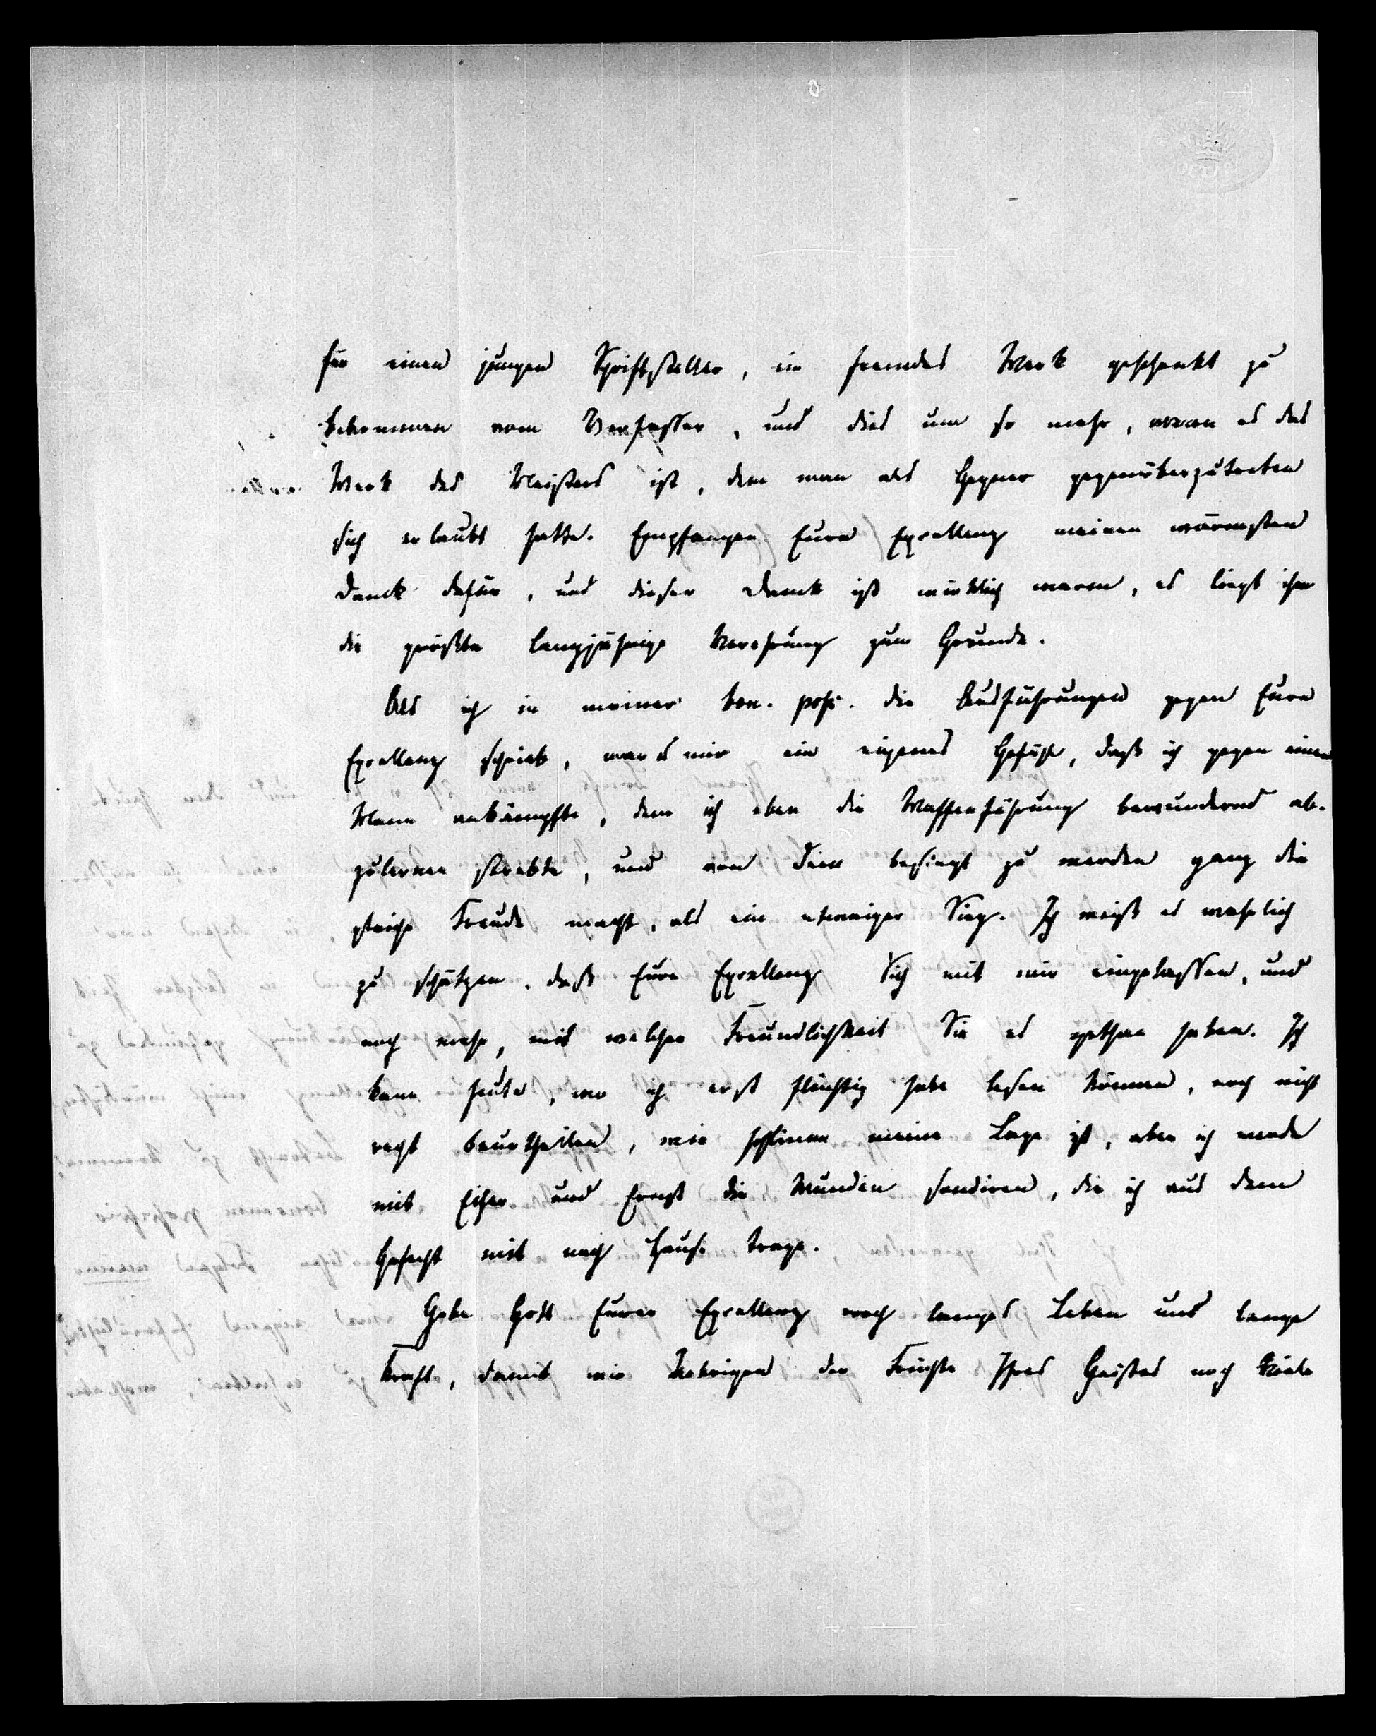 für einen jungen Schriftsteller, ein fremdes Werk geschenkt zu
bekommen vom Verfasser, und dies um so mehr, wenn es das
Werk des Meisters ist, dem man als Gegner gegenüberzutreten
sich erlaubt hatte. Empfangen Eure Excellenz meinen wärmsten
Dank dafür, und dieser Dank ist wirklich warm, es liegt ihm
die größte langjährige Verehrung zum Grunde.
Als ich in meiner bon. poss. die Ausführungen gegen Eure
Excellenz schrieb, war es mir ein eigenes Gefühl, daß ich gegen einen
Mann ankämpfte, dem ich eben die Waffenführung bewundernd ab-
zulernen strebte, und von dem besiegt zu werden ganz die
gleiche Freude macht, als ein etwaiger Sieg. Ich weiß es wahrlich
zu schätzen, daß Eure Excellenz Sich mit mir eingelassen, und
noch mehr, mit welcher Freundlichkeit Sie es gethan haben. Ich
kann heute, wo ich erst flüchtig habe lesen können, noch nicht
recht beurtheilen, wie schlimm meine Lage ist, aber ich werde
mit Eifer und Ernst die Wunden sondiren, die ich aus dem
Gefecht mit nach Hause trage.
Gebe Gott Eurer Excellenz noch langes Leben und lange
Kraft, damit wir Uebrigen der Früchte Ihres Geistes noch viele